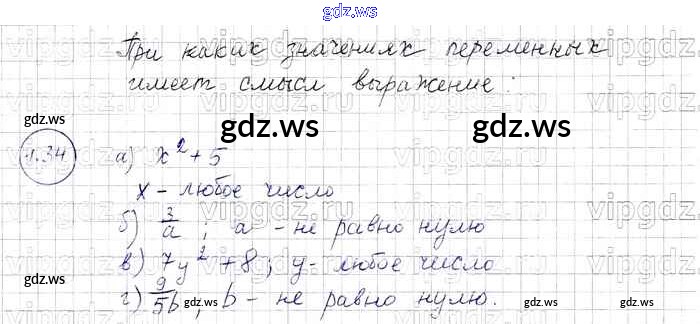 gdz.ws
При каких значениях переменных
имеет смысл выражение:
gdz.ws
gdz.ws gdz.ws
1.34 а) x² + 5
x - любое число
б) 3/a ; a - не равно нулю
в) 7y² + 8 ; y - любое число
г) 9/5b ; b - не равно нулю.
gdz.ws gdz.ws gdz.ws